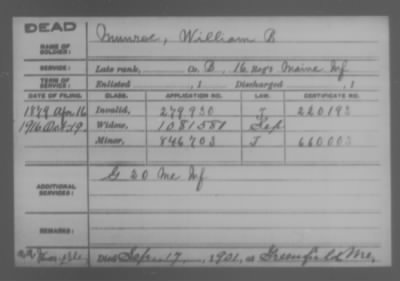 DEAD
NAME OF SOLDIER: Munroe, William B
SERVICE: Late rank, Co. B, 16 Reg't Maine Inf
TERM OF SERVICE: Enlisted , 1 Discharged , 1
DATE OF FILING. CLASS. APPLICATION NO. LAW. CERTIFICATE NO.
1879 Apr 16 Invalid, 279930 J 220193
1916 Oct 19. Widow, 1081581 Sep.
Minor, 846703 J 660003
ADDITIONAL SERVICES: G 20 Me Inf
REMARKS:
Died Sep. 17, 1901, at Greenfield Me,